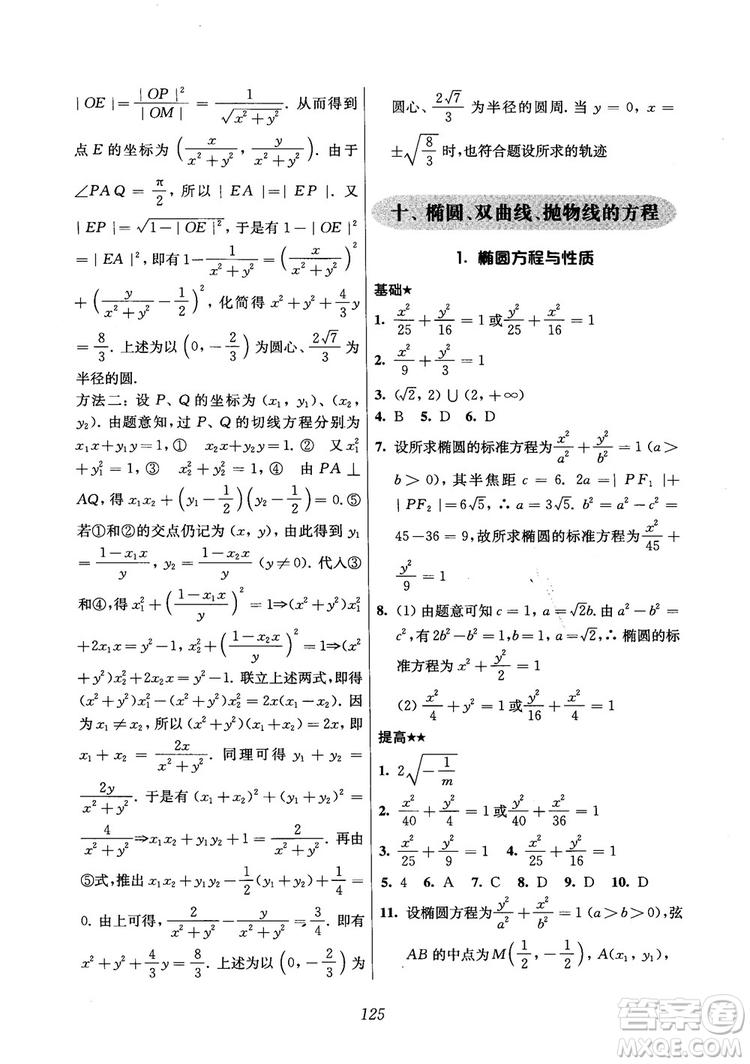 | OE |= | OP |² / | OM | = 1 / √(x²+y²). 从而得到
点 E 的坐标为 (x/(x²+y²), y/(x²+y²)). 由于
∠PAQ = π/2, 所以 | EA |=| EP |. 又
| EP |= √(1-| OE |²), 于是有 1-| OE |²
=| EA |², 即有 1 - 1/(x²+y²) = (x/(x²+y²))²
+ (y/(x²+y²) - 1/2)², 化简得 x²+y²+ 4/3 y
= 8/3. 上述为以 (0, -2/3) 为圆心、2√7/3 为
半径的圆.
方法二：设 P、Q 的坐标为 (x₁, y₁)、(x₂,
y₂). 由题意知, 过 P、Q 的切线方程分别为
x₁x+y₁y=1, ① x₂x+y₂y=1. ② 又 x₁²
+y₁²=1, ③ x₂²+y₂²=1. ④ 由 PA ⊥
AQ, 得 x₁x₂+(y₁-1/2)(y₂-1/2)=0. ⑤
若①和②的交点仍记为 (x, y), 由此得到 y₁
= (1-x₁x)/y, y₂ = (1-x₂x)/y (y≠0). 代入③
和④, 得 x₁²+((1-x₁x)/y)²=1⇒(x²+y²)x₁²
+2x₁x=y²-1, x₂²+((1-x₂x)/y)²=1⇒(x²
+y²)x₂²-2x₂x=y²-1. 联立上述两式, 即有
(x²+y²)x₁²-(x²+y²)x₂²=2x₁x-2x₂x. 因
为 x₁≠x₂, 所以 (x²+y²)(x₁+x₂)=2x, 即
x₁+x₂ = 2x/(x²+y²). 同理可得 y₁+y₂ =
2y/(x²+y²). 于是有 (x₁+x₂)²+(y₁+y₂)²=
4/(x²+y²) ⇒x₁x₂+y₁y₂+1= 2/(x²+y²). 再由
⑤式, 推出 x₁x₂+y₁y₂-1/2(y₁+y₂)+1/4=
0. 由上可得, 2/(x²+y²) - y/(x²+y²) = 3/4. 即有
x²+y²+4/3 y=8/3. 上述为以 (0, -2/3) 为
圆心、2√7/3 为半径的圆周. 当 y = 0, x =
±√(8/3) 时, 也符合题设所求的轨迹
十、椭圆、双曲线、抛物线的方程
1. 椭圆方程与性质
基础★
1. x²/25 + y²/16 = 1 或 y²/25 + x²/16 = 1
2. x²/9 + y²/3 = 1
3. (√2, 2) ∪ (2, +∞)
4. B 5. D 6. D
7. 设所求椭圆的标准方程为 x²/a² + y²/b² = 1(a>
b>0), 其半焦距 c=6. 2a=| PF₁ |+
| PF₂ |=6√5, ∴ a=3√5. b²=a²-c²=
45-36=9, 故所求椭圆的标准方程为 x²/45 +
y²/9 = 1
8. (1) 由题意可知 c=1, a=√2b. 由 a²-b²=
c², 有 2b²-b²=1, b=1, a=√2, ∴ 椭圆的标
准方程为 x²+ y²/2 = 1
(2) x²/4 + y² = 1 或 y²/16 + x²/4 = 1
提高★★
1. 2√(-1/m)
2. x²/40 + y²/4 = 1 或 x²/40 + y²/36 = 1
3. x²/25 + y²/9 = 1 4. x²/25 + y²/16 = 1
5. 4 6. A 7. C 8. D 9. D 10. D
11. 设椭圆方程为 y²/a² + x²/b² = 1 (a>b>0), 弦
AB 的中点为 M(1/2, -1/2), A(x₁, y₁),
125
答案圈
MXQE.COM